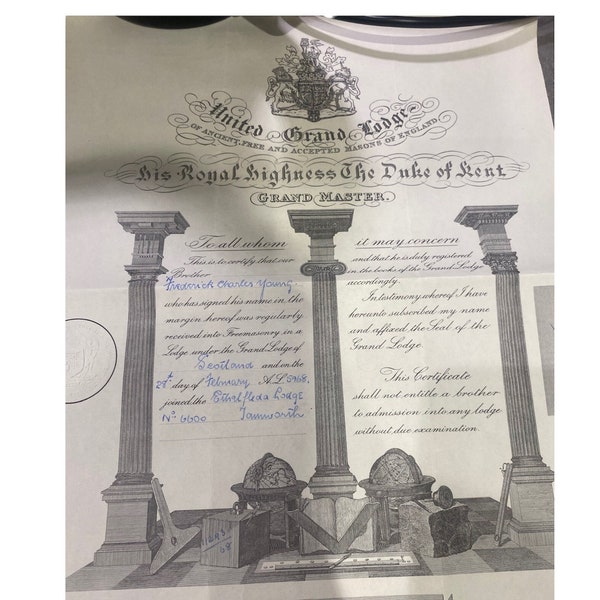 United Grand Lodge
OF ANCIENT, FREE AND ACCEPTED MASONS OF ENGLAND
His Royal Highness The Duke of Kent
GRAND MASTER.
To all whom
This is to certify that our
Brother
Frederick Charles Young
who has signed his name in the
margin hereof was regularly
received into Freemasonry in a
Lodge under the Grand Lodge of
Scotland and on the
28th day of February A.L. 5968.
joined the Ethelfleda Lodge
No. 6600 Tamworth
it may concern
and that he is duly registered
in the books of the Grand Lodge
accordingly.
In testimony whereof I have
hereunto subscribed my name
and affixed the Seal of the
Grand Lodge.
This Certificate
shall not entitle a brother
to admission into any lodge
without due examination.
68